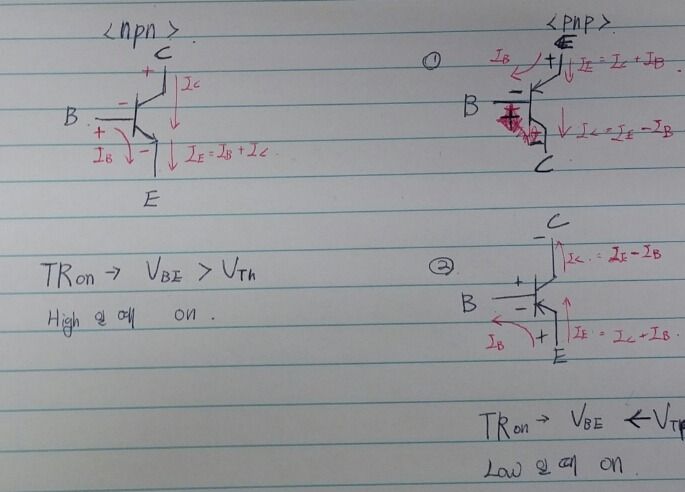 <npn>
C
+
I_C
B
-
+
I_B
-
I_E = I_B + I_C
E
TR on → V_BE > V_Th
High 일 때 on.
<pnp>
①
E
I_B
+
I_E = I_C + I_B
B
-
I_C = I_E - I_B
C
②
C
-
I_C = I_E - I_B
B
+
-
I_B
+
I_E = I_C + I_B
E
TR on → V_BE
Low 일 때 on.